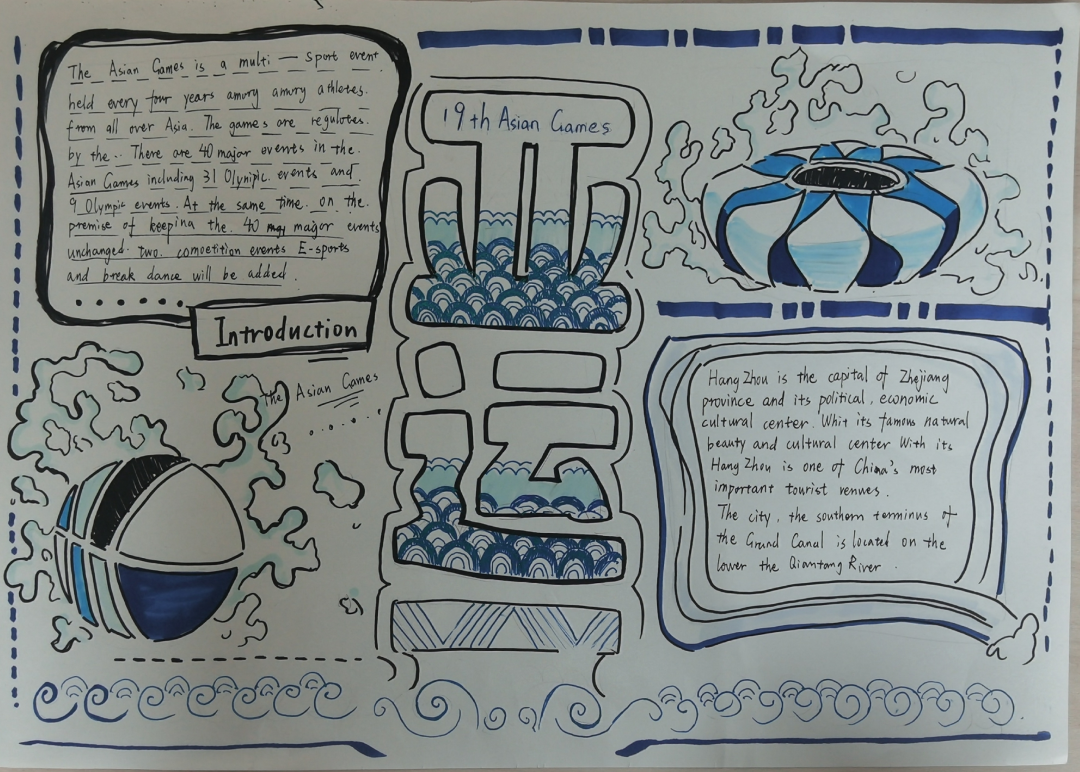 The Asian Games is a multi — Sport event
held every four years amvry amvry athletes.
from all over Asia. The games are regulates.
by the.. There are 40 major events in the.
Asian Games including 31 Olympic events and
9 Olympic events. At the same time. on the.
premise of keeping the. 40 major events
unchanged. two. competition events E-sports
and break dance will be added.
Introduction
The Asian Games
19th Asian Games
亚
运
HangZhou is the capital of Zhejiang
province and its political, economic
cultural center. Whit its famous natural
beauty and cultural center With its
HangZhou is one of China's most
important tourist venues.
The city, the southern terminus of
the Grand Canal is located on the
lower the Qiantang River.